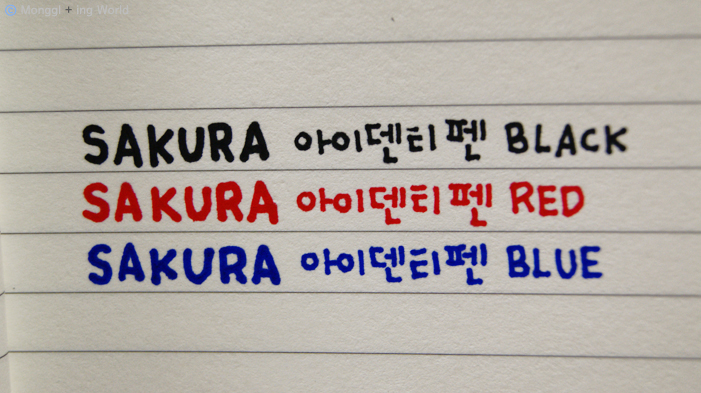 Monggl + ing World
SAKURA 아이덴티펜 BLACK
SAKURA 아이덴티펜 RED
SAKURA 아이덴티펜 BLUE